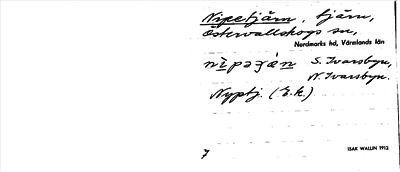 Nipetjärn, tjärn,
Östervallskogs sn,
Nordmarks hd, Värmlands län
S. Ivarsbyn,
N. Ivarsbyn.
Nyptj. (E.k.)
7
ISAK WALLIN 1912